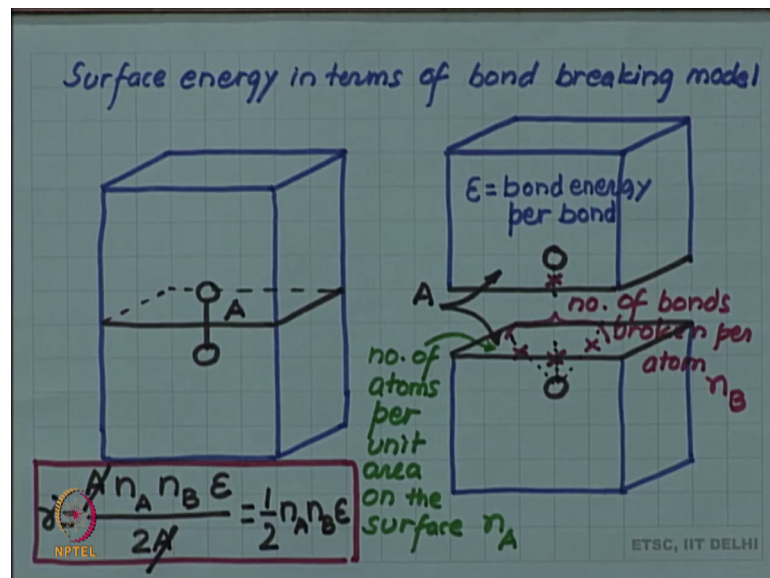 Surface energy in terms of bond breaking model
A
ε = bond energy
per bond
A
no. of bonds
broken per
atom
n_B
no. of
atoms
per
unit
area
on the
surface n_A
γ = A n_A n_B ε / 2A = 1/2 n_A n_B ε
NPTEL
ETSC, IIT DELHI